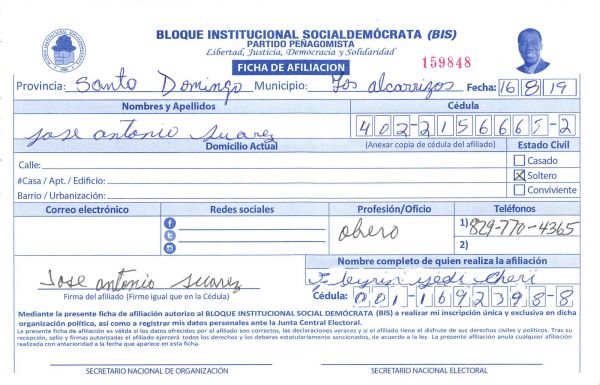 BLOQUE INSTITUCIONAL SOCIALDEMÓCRATA (BIS)
PARTIDO PEÑAGOMISTA
Libertad, Justicia, Democracia y Solidaridad
FICHA DE AFILIACION
159848
Provincia: Santo Domingo Municipio: Los alcarrizos Fecha: 16 8 19
Nombres y Apellidos Cédula
Jose antonio Suarez 402-2156665-2
Domicilio Actual (Anexar copia de cédula del afiliado) Estado Civil
Calle: Casado
#Casa / Apt. / Edificio: Soltero
Barrio / Urbanización: Conviviente
Correo electrónico Redes sociales Profesión/Oficio Teléfonos
obrero 1) 829-770-4365
2)
Nombre completo de quien realiza la afiliación
Jose antonio Suarez
Firma del afiliado (Firme igual que en la Cédula) Cédula: 001-1692398-8
Mediante la presente ficha de afiliación autorizo al BLOQUE INSTITUCIONAL SOCIAL DEMÓCRATA (BIS) a realizar mi inscripción única y exclusiva en dicha
organización política, así como a registrar mis datos personales ante la Junta Central Electoral.
La presente ficha de afiliación es válida si los datos ofrecidos por el afiliado son correctos, las declaraciones veraces y si el afiliado tiene el disfrute de sus derechos civiles y políticos. Tras su
recepción, sello y firmas autorizadas el afiliado ejercerá todos los derechos y los deberes estatutariamente sancionados, de acuerdo a la ley. La presente afiliación anula cualquier afiliación
realizada con anterioridad a la fecha que aparece en esta ficha.
SECRETARIO NACIONAL DE ORGANIZACIÓN SECRETARIO NACIONAL ELECTORAL